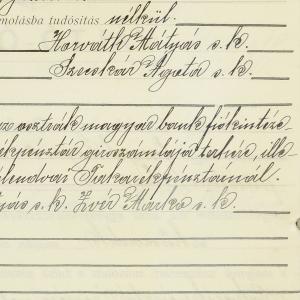 molásba tudósítás nélkül.
Horváth Mátyás s. k.
Szecskár Ágota s. k.
az osztrák magyar bank fiókintéze-
ékpénztár giroszámlája terhére, ille-
lendvai Takarékpénztárnál.
yás s. k. Zvér Márko s. k.